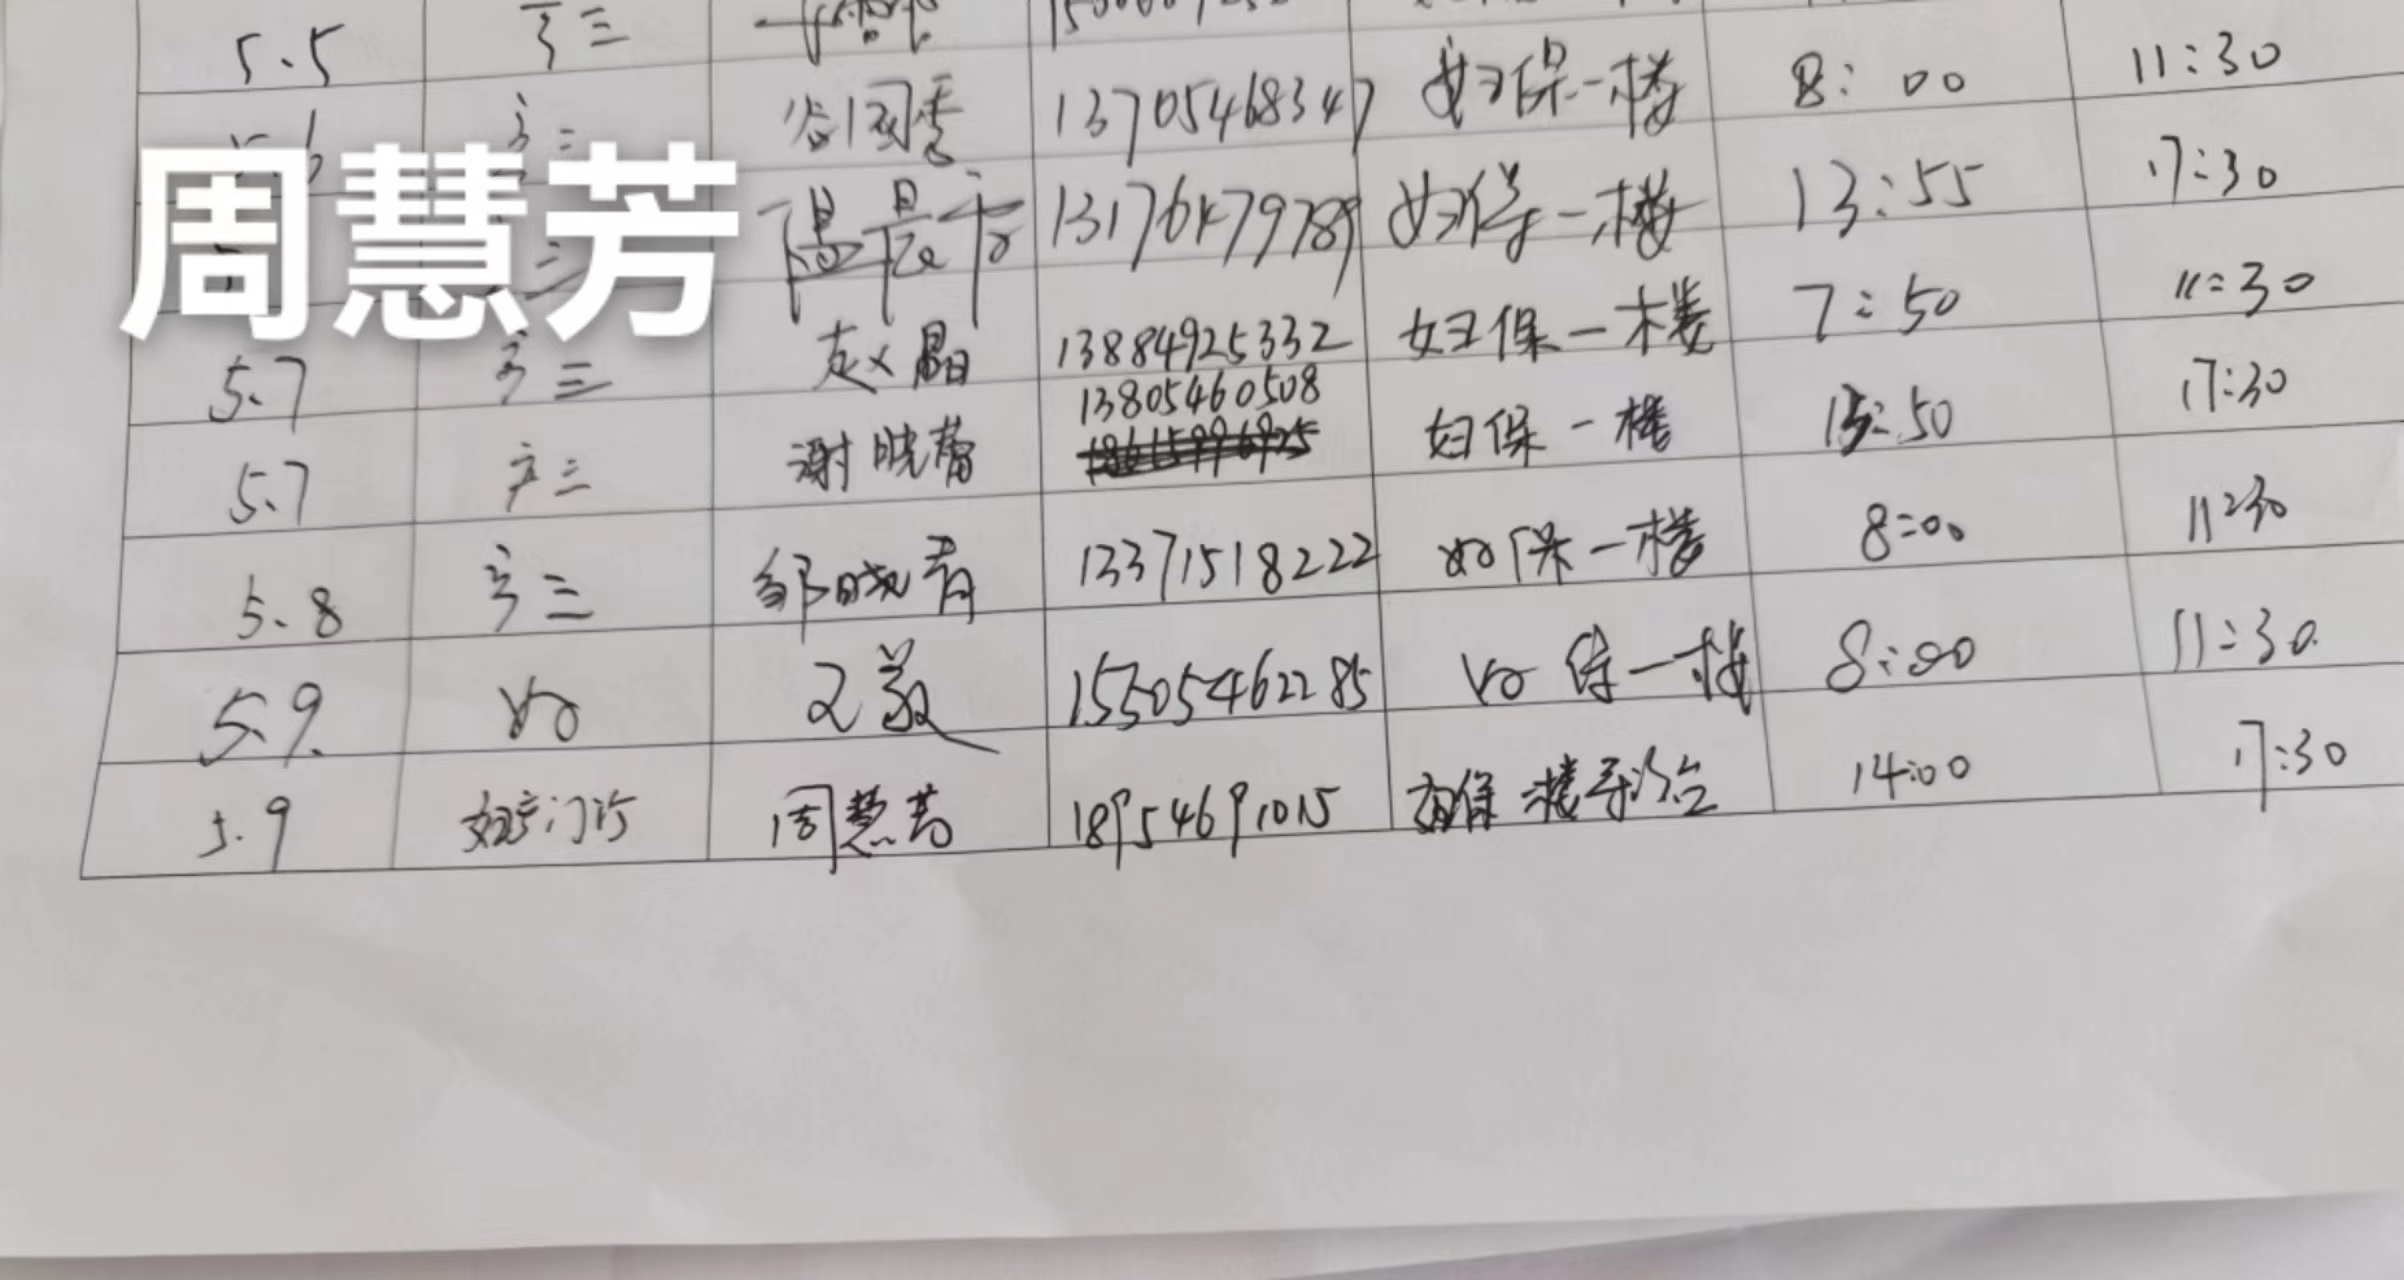 5.5 产三
谷国秀 13705468347 妇保一楼 8:00 11:30
周慧芳
13176479789 妇保一楼 13:55 17:30
5.7 产三 赵晶 13884925332 妇保一楼 7:50 11:30
13805460508
5.7 产三 谢晓蕾 妇保一楼 13:50 17:30
5.8 产三 邹晓青 13371518222 妇保一楼 8:00 11:30
5.9. 妇 15305462285 妇保一楼 8:00 11:30.
5.9 妇产门诊 周慧芳 18954691015 妇保一楼导诊台 14:00 17:30